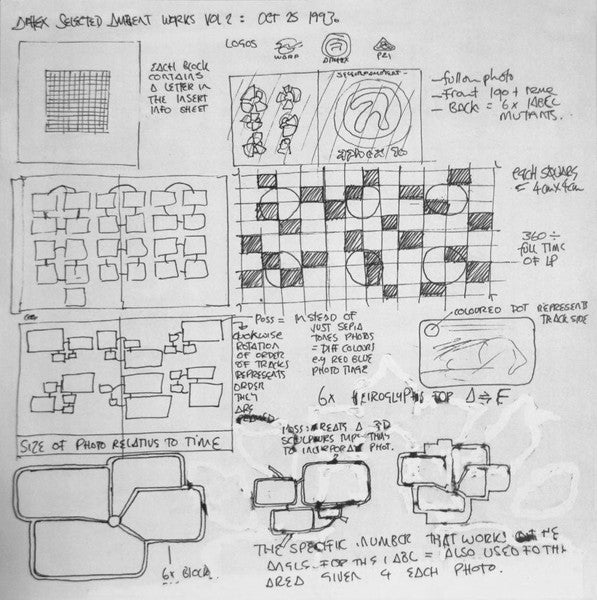 APHEX SELECTED AMBIENT WORKS VOL 2 : OCT 25 1993.
LOGOS
WARP
APHEX
EACH BLOCK
CONTAINS
A LETTER IN
THE INSERT
INFO SHEET
— full on photo
— Front logo + name
— BACK = 6x LABEL
MUTANTS.
EACH SQUARE
= 4cm x 4cm
360 ÷
FULL TIME
OF LP
COLOURED DOT REPRESENTS
TRACK SIDE
CLOCKWISE
ROTATION
OF ORDER
OF TRACKS
REPRESENTS
ORDER
THEY
ARE
POSS = INSTEAD OF
JUST SEPIA
TONES PHOTOS
= DIFF COLOURS
e.g RED BLUE
PHOTO
6x HEIROGLYPHS FOR A ⇒ F
SIZE OF PHOTO RELATIVE TO TIME
A 3D
SCULPTURE
TO INCORPORATE PHOT.
6x BLOCK
THE SPECIFIC NUMBER THAT WORKS THE
ANGLE FOR THE LABEL = ALSO USED FOR THE
AREA GIVEN 4 EACH PHOTO.